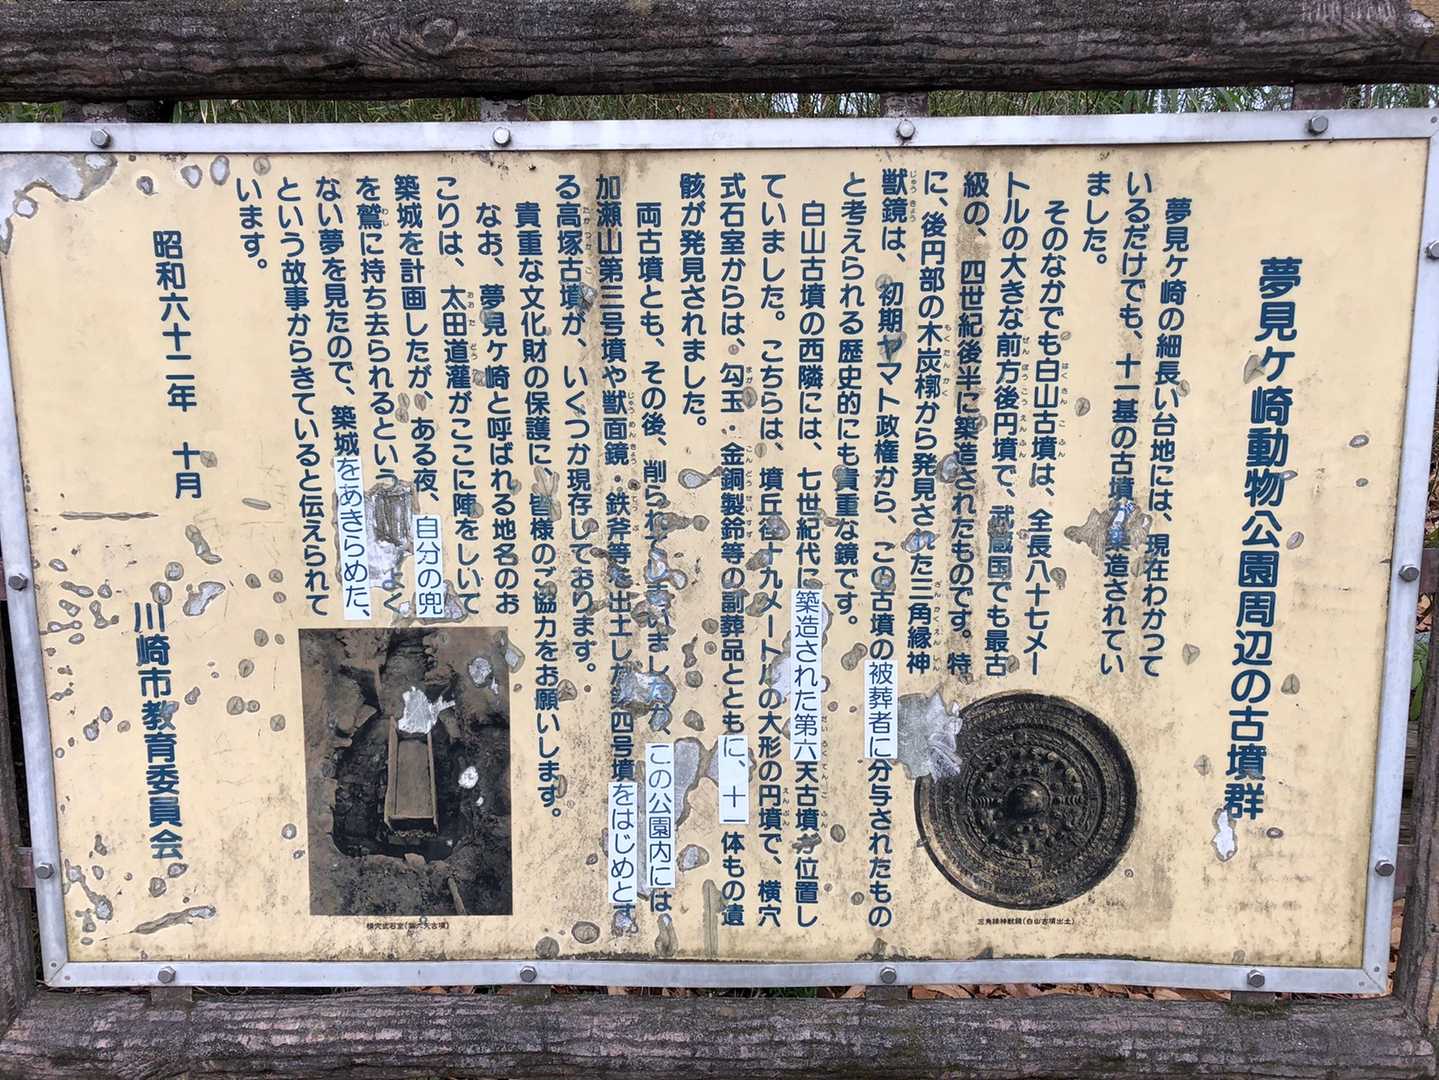 夢見ケ崎動物公園周辺の古墳群
夢見ケ崎の細長い台地には、現在わかって
いるだけでも、十一基の古墳が築造されてい
ました。
そのなかでも白山古墳は、全長八十七メー
トルの大きな前方後円墳で、武蔵国でも最古
級の、四世紀後半に築造されたものです。特
に、後円部の木炭槨から発見された三角縁神
獣鏡は、初期ヤマト政権から、この古墳の被葬者に分与されたもの
と考えられる歴史的にも貴重な鏡です。
白山古墳の西隣には、七世紀代に築造された第六天古墳が位置し
ていました。こちらは、墳丘径十九メートルの大形の円墳で、横穴
式石室からは、勾玉・金銅製鈴等の副葬品とともに、十一体もの遺
骸が発見されました。
両古墳とも、その後、削られてしまいましたが、この公園内には、
加瀬山第三号墳や獣面鏡・鉄斧等を出土した第四号墳をはじめとす
る高塚古墳が、いくつか現存しております。
貴重な文化財の保護に、皆様のご協力をお願いします。
なお、夢見ケ崎と呼ばれる地名のお
こりは、太田道灌がここに陣をしいて
築城を計画したが、ある夜、自分の兜
を鷲に持ち去られるという よく
ない夢を見たので、築城をあきらめた、
という故事からきていると伝えられて
います。
昭和六十二年 十月
川崎市教育委員会
三角縁神獣鏡(白山古墳出土)
横穴式石室(第六天古墳)